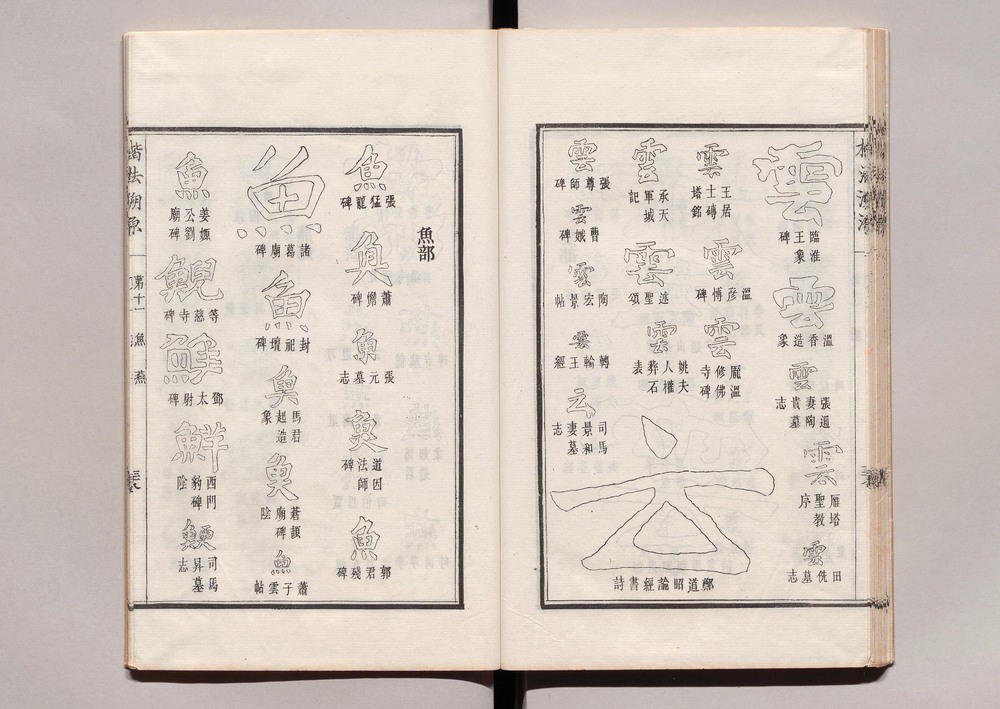 雲
臨淮王象碑
雲
溫香造象
雲
張通妻陶貴墓志
雲
雁塔聖教序
雲
田侁墓志
雲
王居士磚塔銘
雲
溫彥博碑
雲
溫佛寺碑
雲
承天軍城記
雲
述聖頌
雲
姚夫人權葬石表
云
鄭道昭論經書詩
雲
張尊師碑
雲
曹娥碑
雲
陶宏景帖
雲
轉輪王經
云
司馬景和妻墓志
魚部
魚
張猛龍碑
魚
蕭憺碑
魚
張元墓志
魚
道因法師碑
魚
郭君殘碑
魚
諸葛廟碑
魚
封祀壇碑
魚
馬君起造象
魚
蒼頡廟碑陰
魚
蕭子雲帖
魚
姜嫄公劉廟碑
鯢
等慈寺碑
鮮
鄧太尉碑
鮮
西門豹碑陰
鯁
司馬昇墓志
楷法溯源
第十一
魚
燕